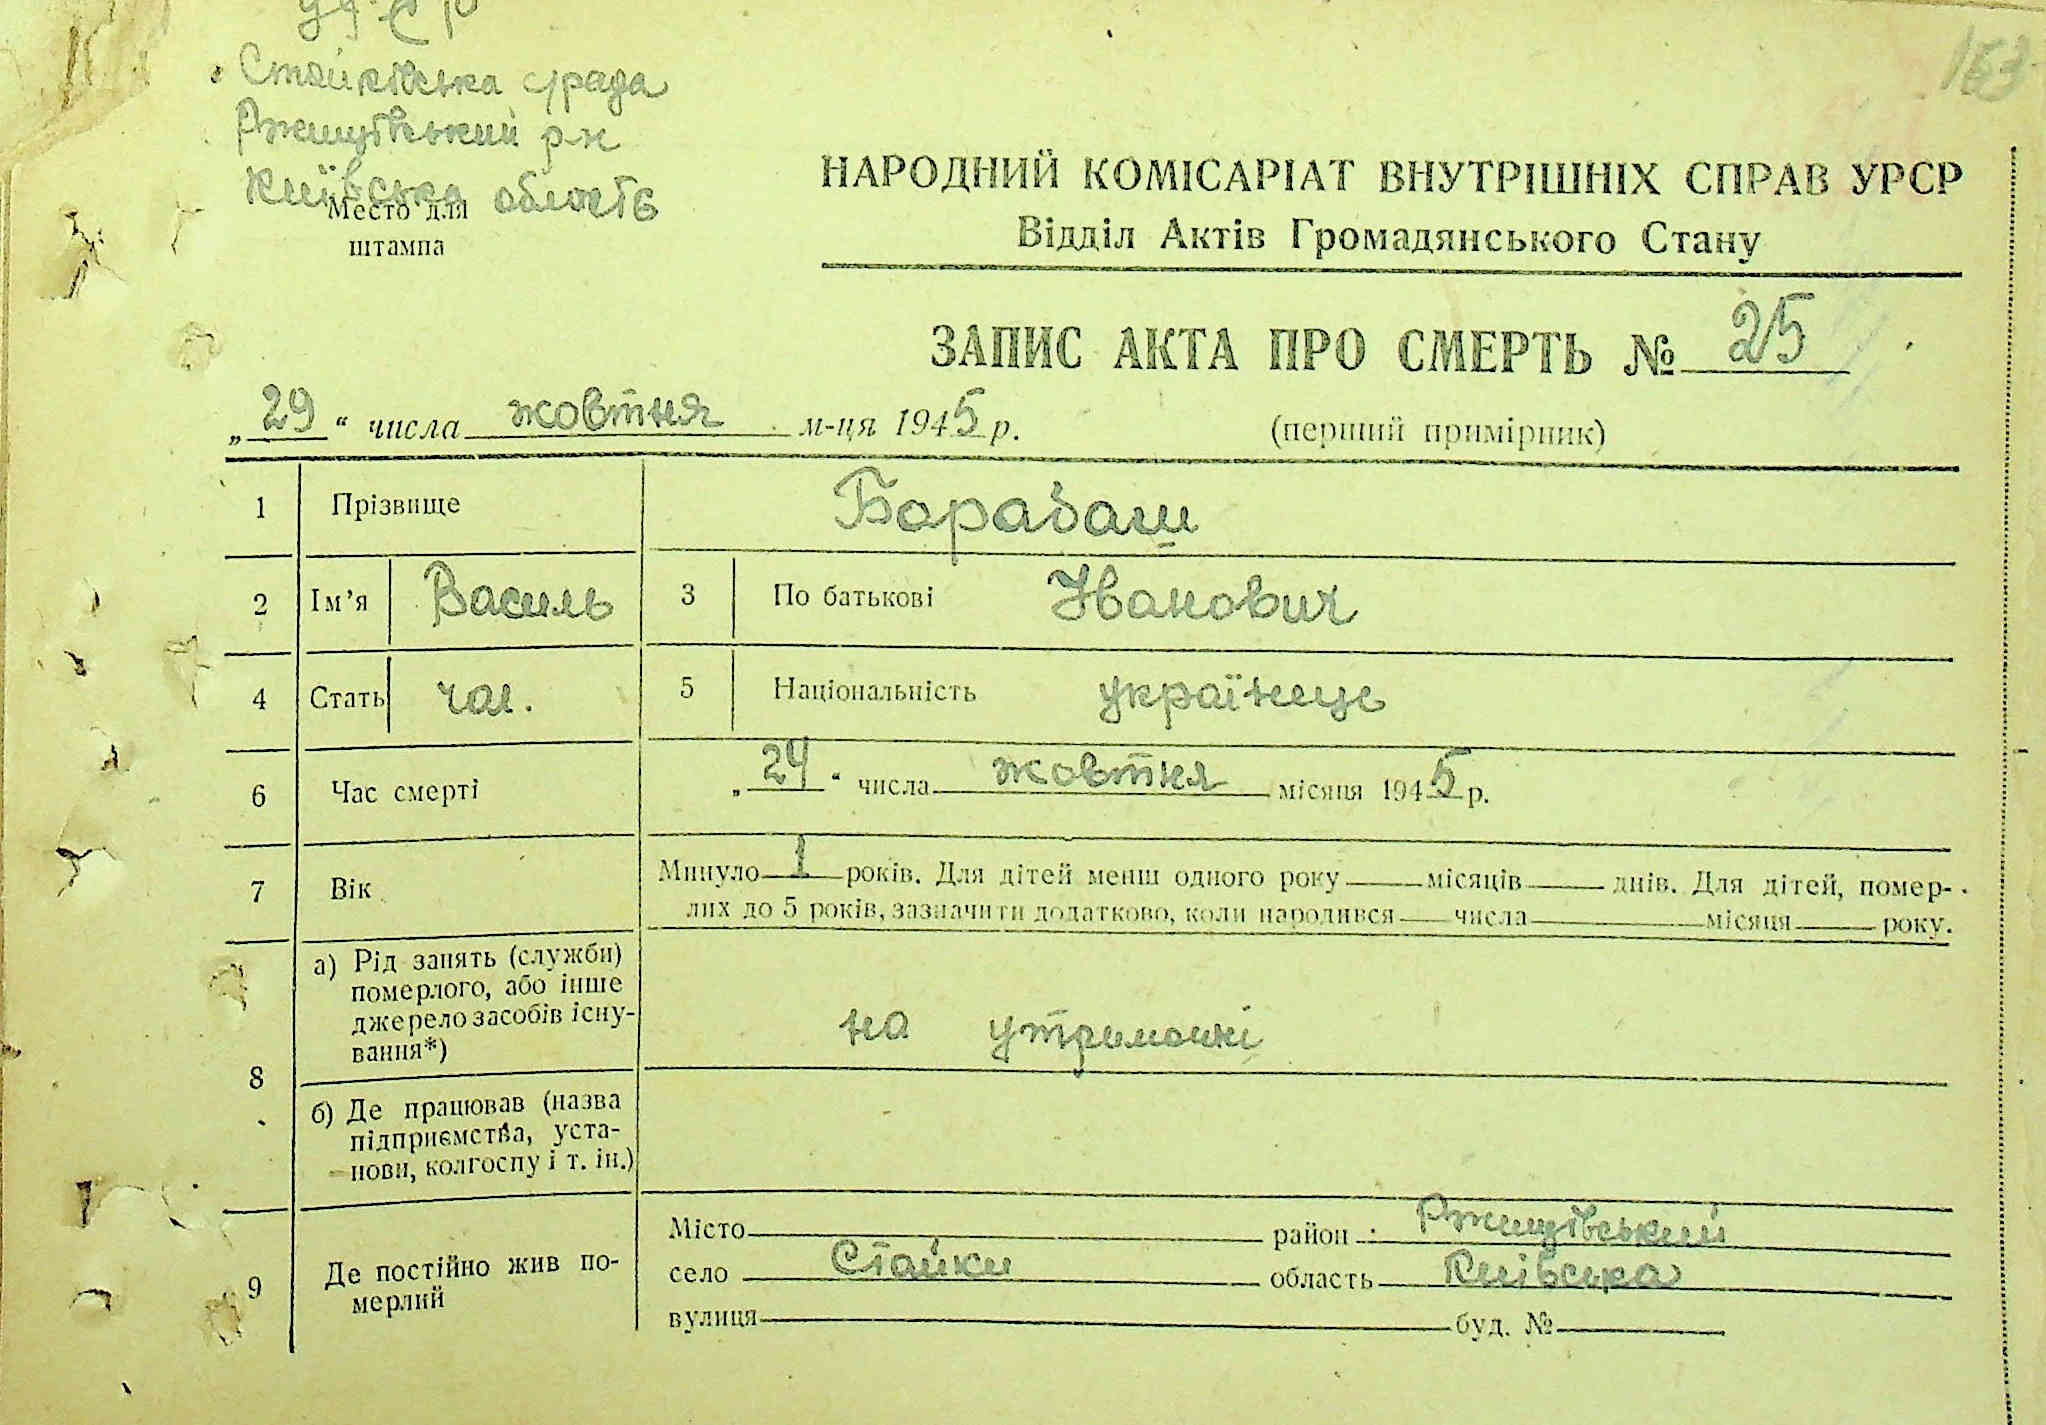 УРСР
Стайківська с/рада
Ржищівський р-н
Київська область
Место для
штампа
163
НАРОДНИЙ КОМІСАРІАТ ВНУТРІШНІХ СПРАВ УРСР
Відділ Актів Громадянського Стану
ЗАПИС АКТА ПРО СМЕРТЬ № 25
„29“ числа жовтня м-ця 1945 р. (перший примірник)
1 Прізвище Барабаш
2 Ім’я Василь 3 По батькові Іванович
4 Стать чол. 5 Національність українець
6 Час смерті „24“ числа жовтня місяця 1945 р.
7 Вік Минуло 1 років. Для дітей менш одного року місяців днів. Для дітей, помер-
лих до 5 років, зазначити додатково, коли народився числа місяця року.
8 а) Рід занять (служби)
померлого, або інше
джерело засобів існу-
вання*)
на утриманні
б) Де працював (назва
підприємства, уста-
нови, колгоспу і т. ін.)
9 Де постійно жив по-
мерлий
Місто район Ржищівський
село Стайки область Київська
вулиця буд. №